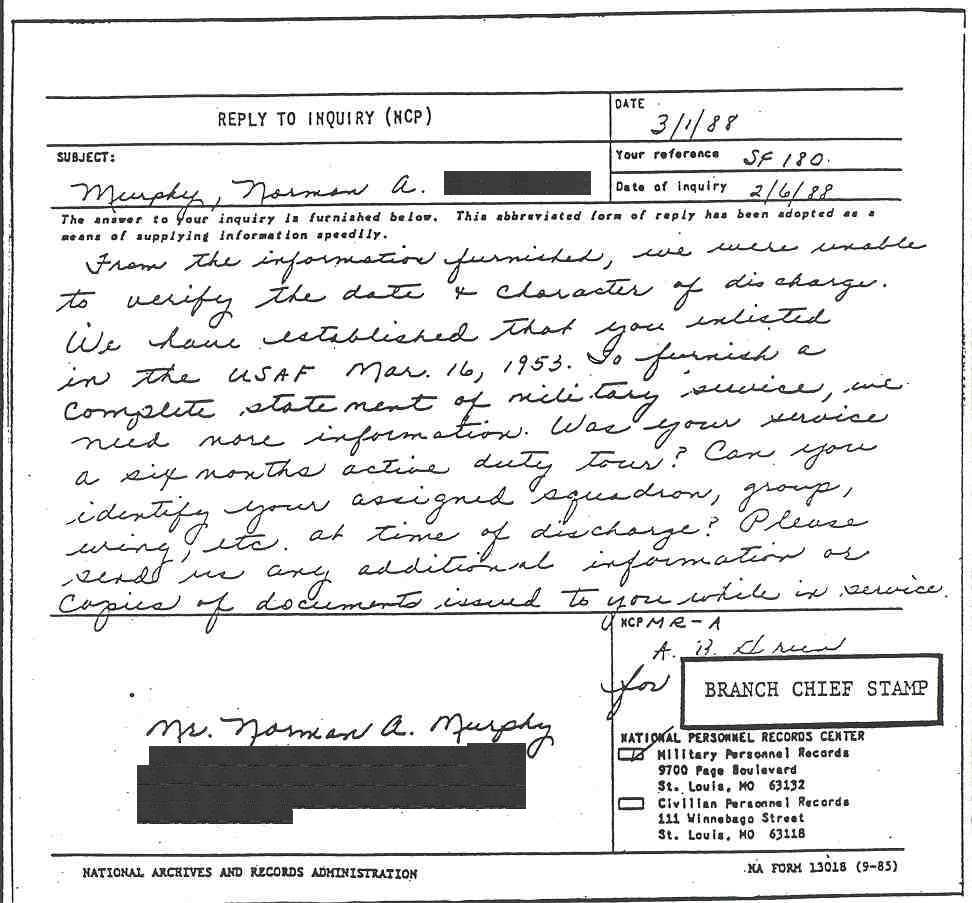 REPLY TO INQUIRY (NCP)
DATE
3/1/88
SUBJECT:
Murphy, Norman A.
Your reference SF 180.
Date of inquiry 2/6/88
The answer to your inquiry is furnished below. This abbreviated form of reply has been adopted as a
means of supplying information speedily.
From the information furnished, we were unable
to verify the date & character of discharge.
We have established that you enlisted
in the USAF Mar. 16, 1953. To furnish a
complete statement of military service, we
need more information. Was your service
a six months active duty tour? Can you
identify your assigned squadron, group,
wing, etc. at time of discharge? Please
send us any additional information or
copies of documents issued to you while in service.
NCPMR-A
A. B.
for
BRANCH CHIEF STAMP
Mr. Norman A. Murphy
NATIONAL PERSONNEL RECORDS CENTER
Military Personnel Records
9700 Page Boulevard
St. Louis, MO 63132
Civilian Personnel Records
111 Winnebago Street
St. Louis, MO 63118
NATIONAL ARCHIVES AND RECORDS ADMINISTRATION
NA FORM 13018 (9-85)